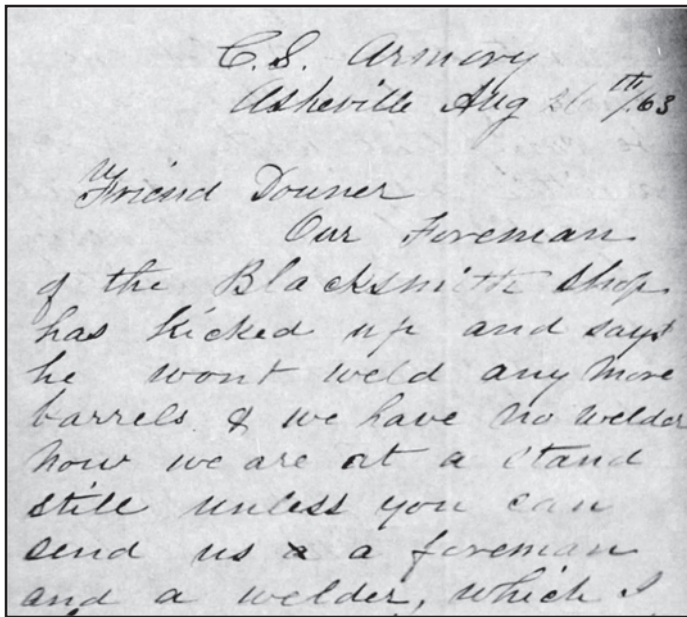 C.S. Armory
Asheville Aug 26th/63
Friend Downer
Our Foreman
of the Blacksmith shop
has kicked up and says
he wont weld any more
barrels & we have no welder
now we are at a stand
still unless you can
send us a foreman
and a welder, which I